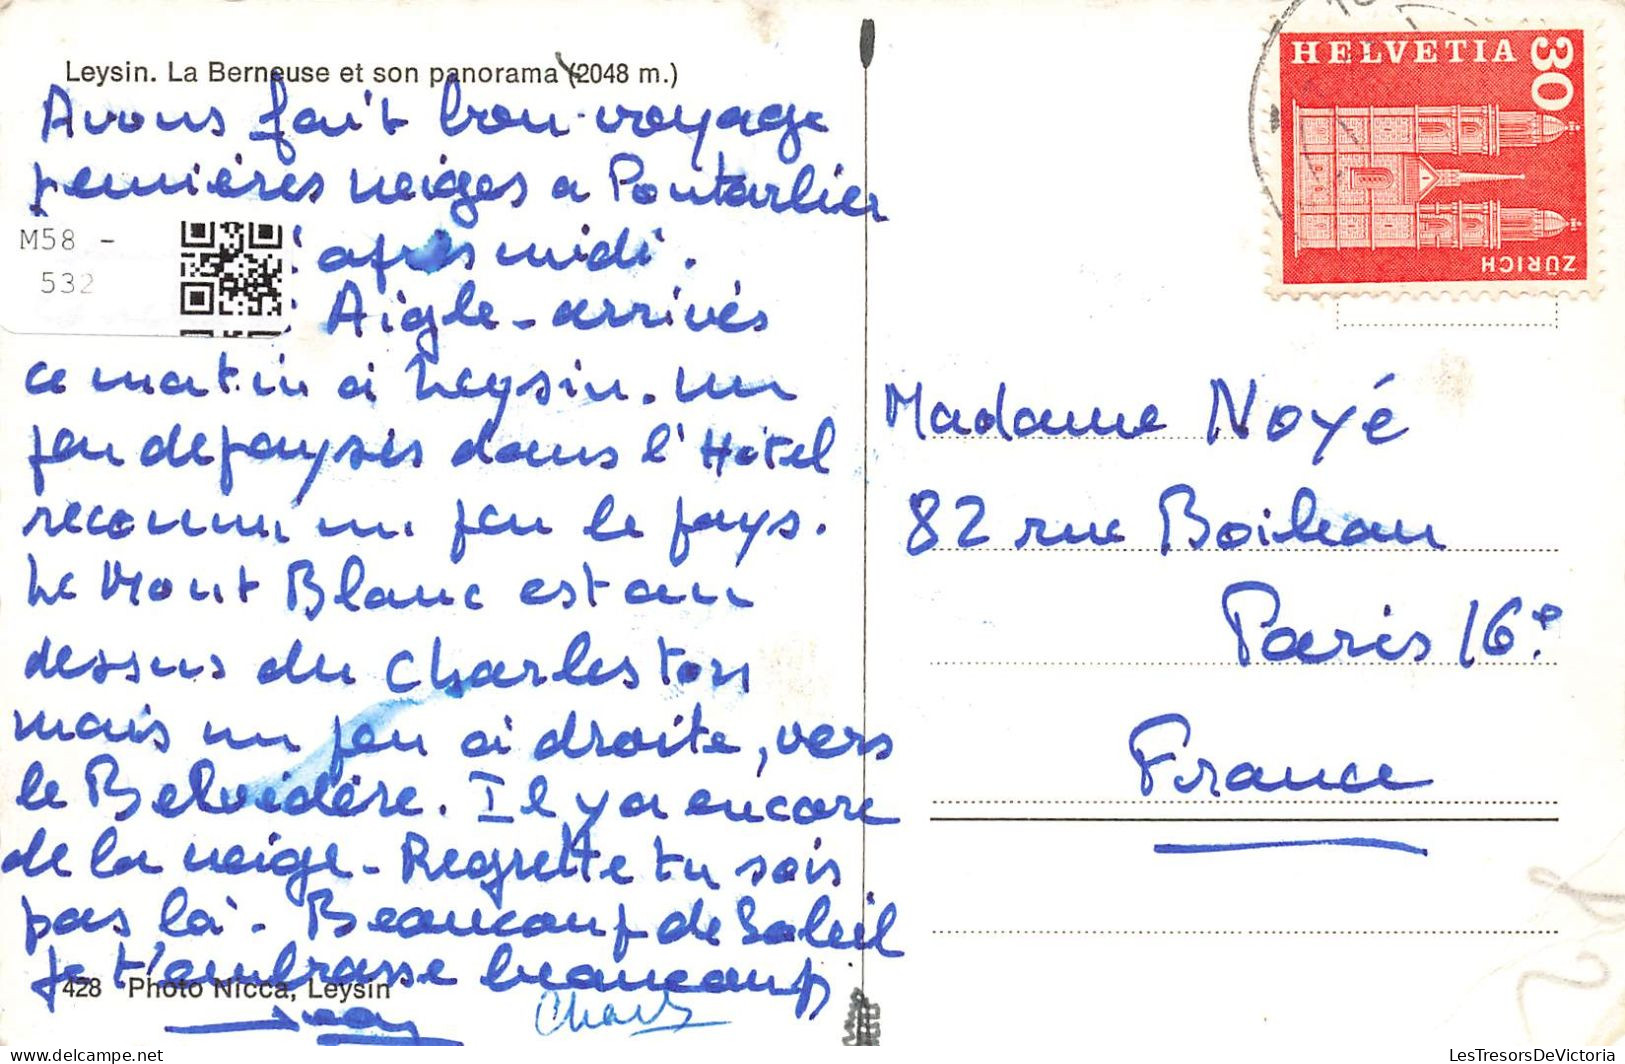 Leysin. La Berneuse et son panorama (2048 m.)
Avons fait bon voyage
premières neiges a Pontarlier
après midi.
Aigle - arrivés
ce matin à Leysin. un
peu depaysés dans l'Hôtel
reconnu un peu le pays.
Le Mont Blanc est au
dessus du Charleston
mais un peu à droite, vers
le Belvidère. Il y a encore
de la neige - Regrette tu sois
pas là. Beaucoup de Soleil
Je t'embrasse beaucoup
428 Photo Nicca, Leysin
M58 -
532
HELVETIA
30
ZÜRICH
Madame Noyé
82 rue Boileau
Paris 16e
France
LesTresorsDeVictoria